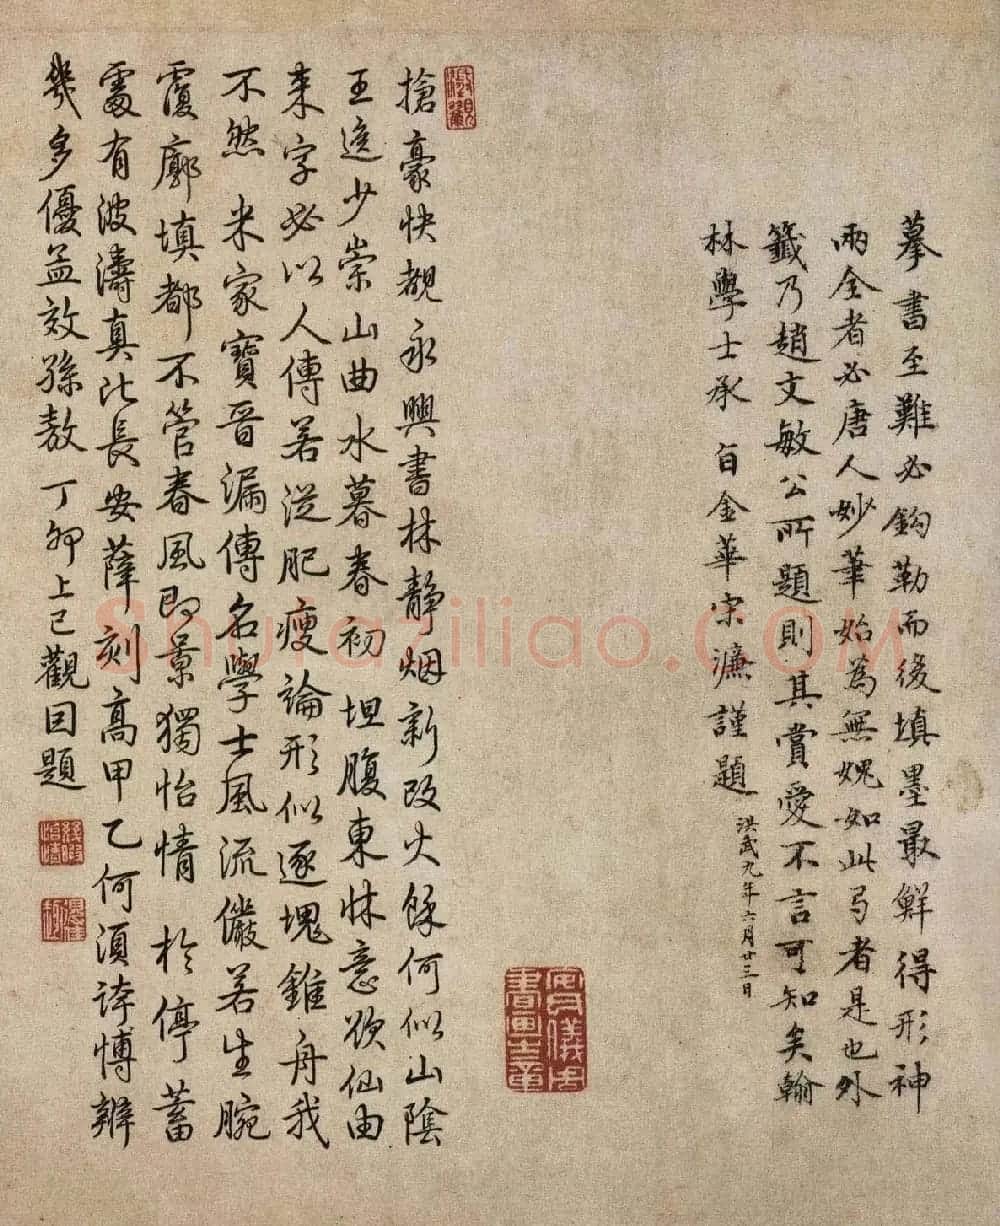 摹書至難必鈎勒而後填墨最鮮得形神
兩全者必唐人妙筆始為無媿如此弓者是也外
籤乃趙文敏公所題則其賞愛不言可知矣翰
林學士承旨金華宋濂謹題
洪武九年六月廿三日
搶豪快覩永興書林静烟新改火餘何似山陰
王逸少崇山曲水暮春初 坦腹東牀意欲仙由
来字必以人傳若從肥瘦論形似逐塊錐舟我
不然 米家寶晋漏傳名學士風流儼若生腕
覆廓填都不管春風即景獨怡情 於停蓄
處有波濤真比長安薛刻高甲乙何須誇博辨
幾多優孟效孫敖丁卯上巳觀因題
Shufaziliao.COM